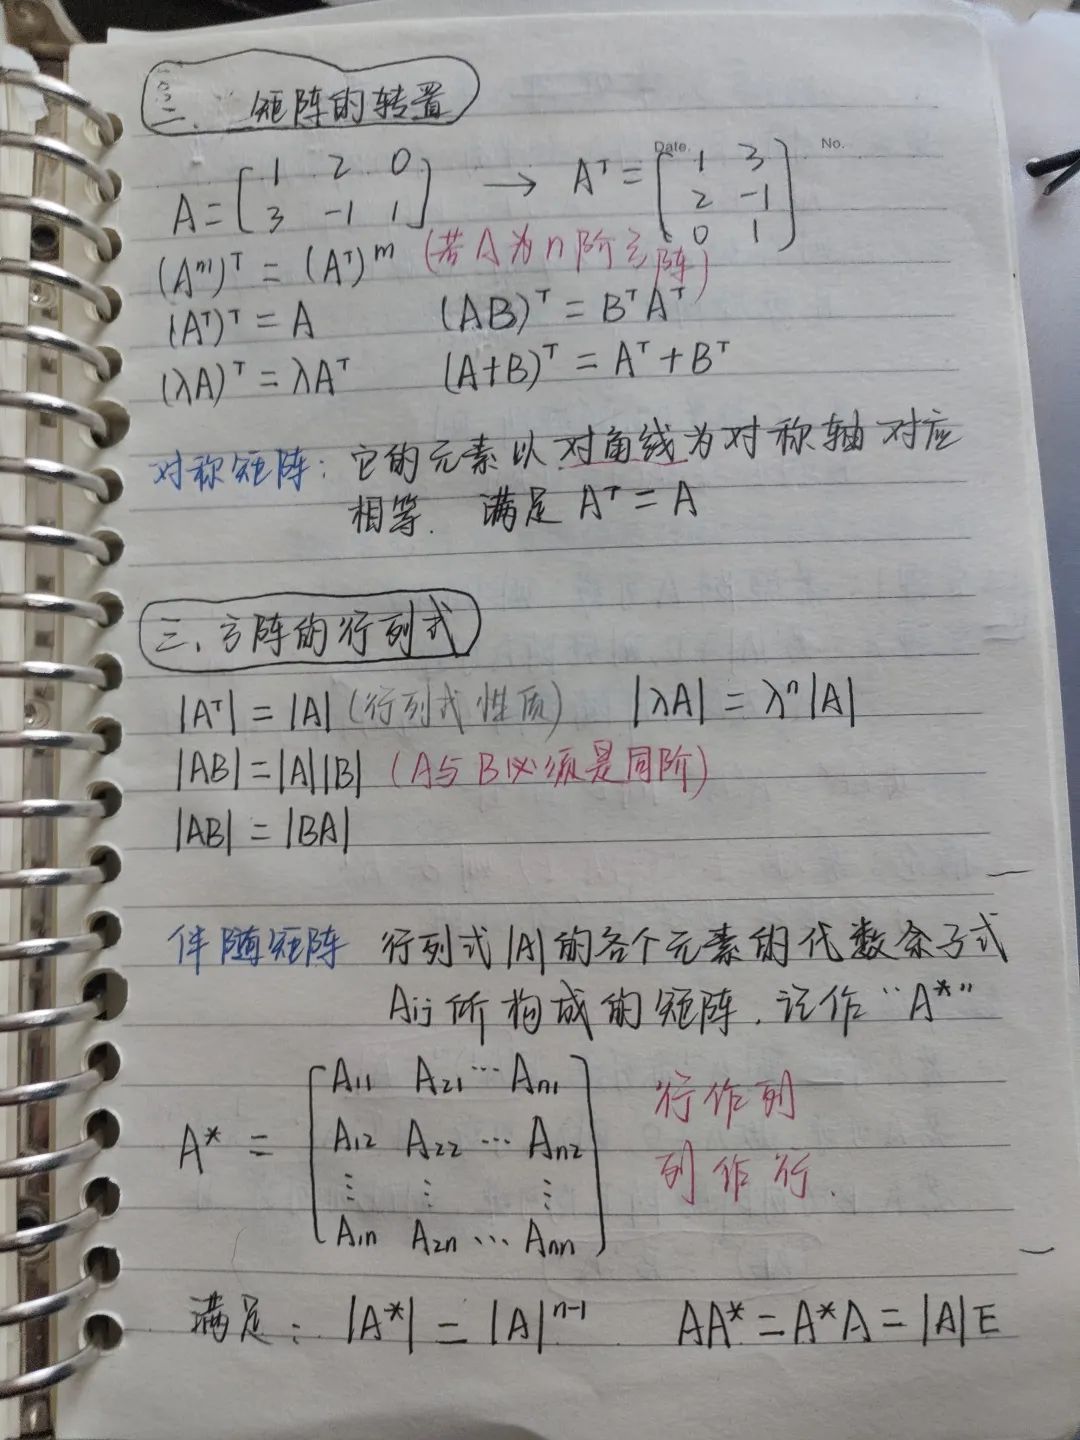 二、矩阵的转置
Date. No.
A = [1 2 0; 3 -1 1] → Aᵀ = [1 3; 2 -1; 0 1]
(Aᵐ)ᵀ = (Aᵀ)ᵐ (若A为n阶方阵)
(Aᵀ)ᵀ = A (AB)ᵀ = BᵀAᵀ
(λA)ᵀ = λAᵀ (A+B)ᵀ = Aᵀ + Bᵀ
对称矩阵: 它的元素以对角线为对称轴对应
相等. 满足 Aᵀ = A
三、方阵的行列式
|Aᵀ| = |A| (行列式性质) |λA| = λⁿ|A|
|AB| = |A||B| (A与B必须是同阶)
|AB| = |BA|
伴随矩阵 行列式|A|的各个元素的代数余子式
Aij所构成的矩阵. 记作“A*”
A* = [A11 A21 ⋯ An1; A12 A22 ⋯ An2; ⋮ ⋮ ⋮; A1n A2n ⋯ Ann]
行作列
列作行.
满足: |A*| = |A|ⁿ⁻¹ AA* = A*A = |A|E